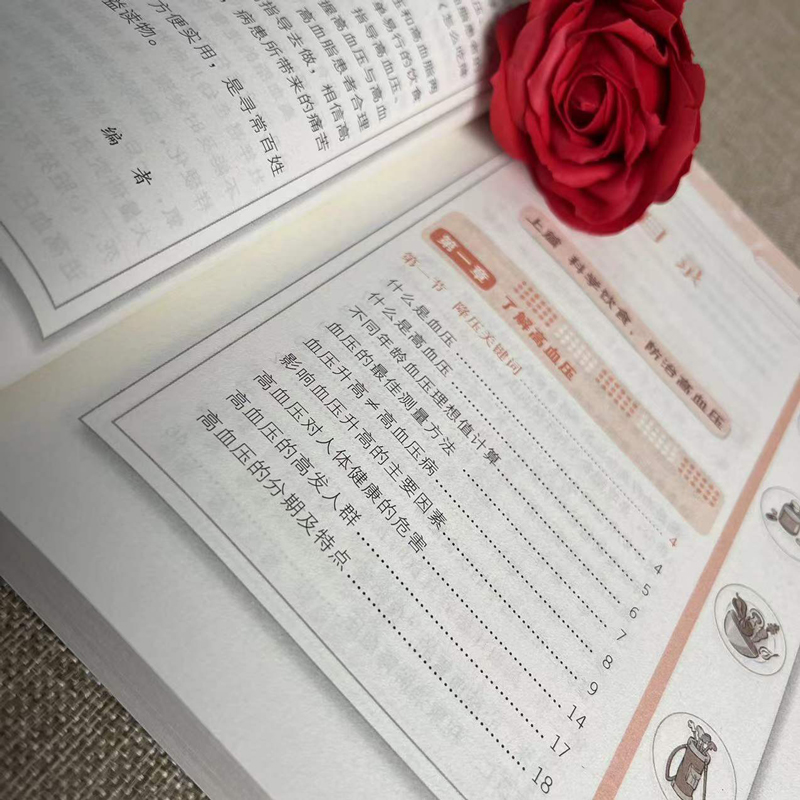 《怎么吃降
压和高血脂两
单易行的饮食
指导高血压、
据高血压与高血
高血脂患者合理
指导去做，相信高
病患所带来的痛苦
方便实用，是寻常百姓
益读物。
编 者
目 录
上篇 科学饮食，防治高血压
第一章 了解高血压
第一节 降压关键词 4
什么是血压 4
什么是高血压 5
不同年龄血压理想值计算 6
血压的最佳测量方法 7
血压升高≠高血压病 8
影响血压升高的主要因素 9
高血压对人体健康的危害 14
高血压的高发人群 17
高血压的分期及特点 18